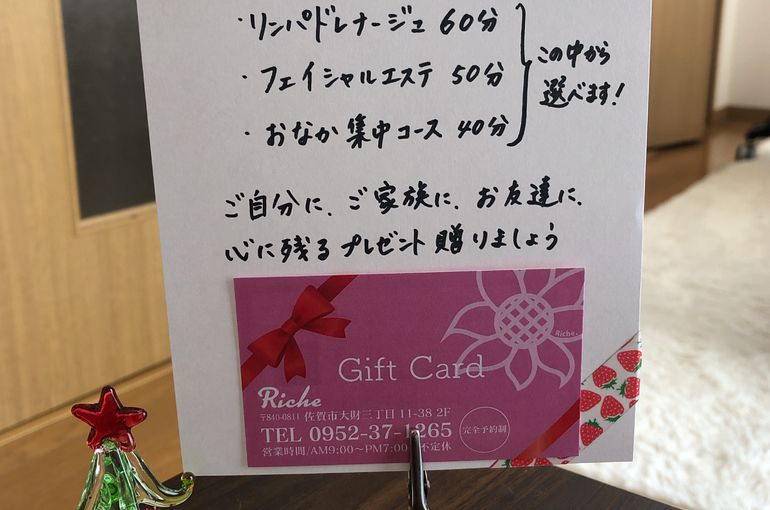 ・リンパドレナージュ 60分
・フェイシャルエステ 50分
・おなか集中コース 40分
この中から
選べます!
ご自分に、ご家族に、お友達に、
心に残るプレゼント贈りましょう
Riche
Gift Card
Riche
〒840-0811 佐賀市大財三丁目11-38 2F
TEL 0952-37-1265
完全予約制
営業時間/AM9:00～PM7:00 不定休